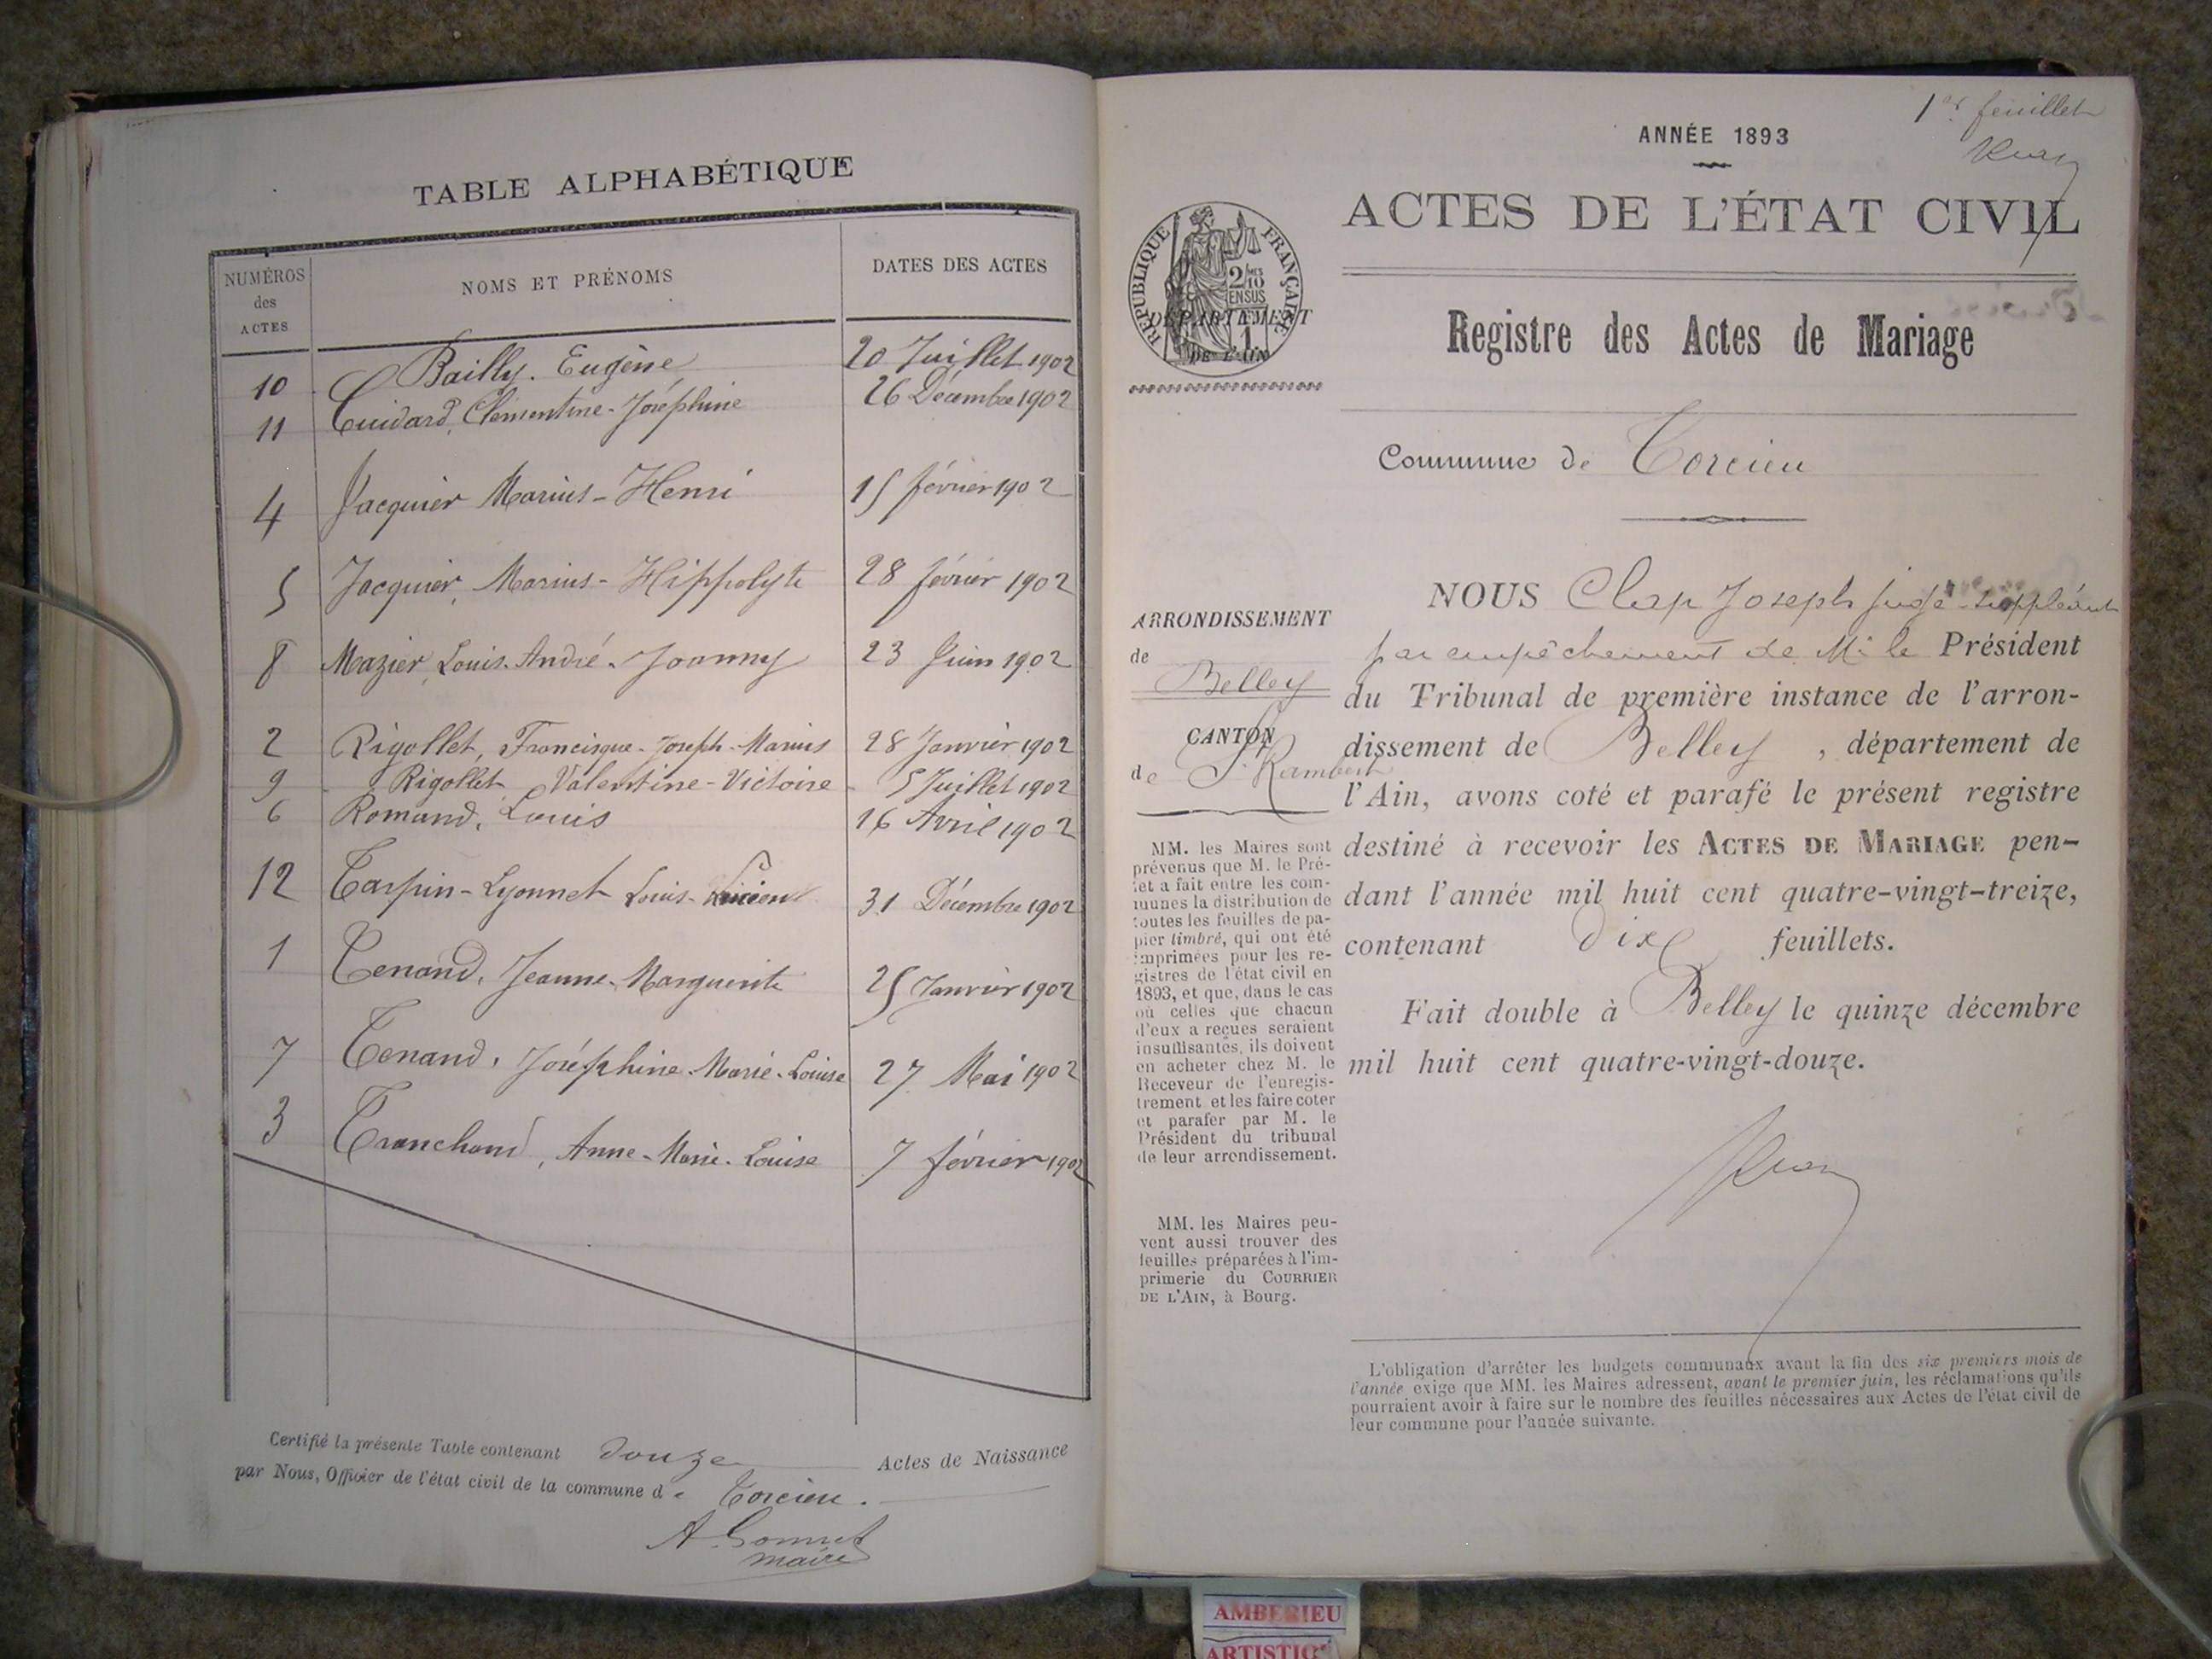 TABLE ALPHABÉTIQUE
NUMÉROS des ACTES NOMS ET PRÉNOMS DATES DES ACTES
10 Bailly. Eugène 20 Juillet 1902
11 Cuidard, Clémentine-Joséphine 26 Décembre 1902
4 Jacquier Marius-Henri 15 février 1902
5 Jacquier, Marius-Hippolyte 28 février 1902
8 Mazier, Louis-André-Joanny 23 Juin 1902
2 Rigollet, Francisque-Joseph-Marius 28 Janvier 1902
9 Rigollet Valentine-Victoire 5 Juillet 1902
6 Romand, Louis 16 Avril 1902
12 Tarpin-Lyonnet Louis-Lucien 31 Décembre 1902
1 Tenand, Jeanne-Marguerite 25 Janvier 1902
7 Tenand, Joséphine-Marie-Louise 27 Mai 1902
3 Tranchand, Anne-Marie-Louise 7 février 1902
Certifié la présente Table contenant douze Actes de Naissance
par Nous, Officier de l'état civil de la commune de Torcieu.
A. Bonnet
maire
1er feuillet
ANNÉE 1893
ACTES DE L'ÉTAT CIVIL
RÉPUBLIQUE FRANÇAISE
2/10 EN SUS
DÉPARTEMENT
1
DE L'AIN
Registre des Actes de Mariage
Commune de Torcieu
ARRONDISSEMENT
de
Belley
CANTON
de St Rambert
MM. les Maires sont
prévenus que M. le Pré-
fet a fait entre les com-
munes la distribution de
toutes les feuilles de pa-
pier timbré, qui ont été
imprimées pour les re-
gistres de l'état civil en
1893, et que, dans le cas
où celles que chacun
d'eux a reçues seraient
insuffisantes, ils doivent
en acheter chez M. le
Receveur de l'enregis-
trement et les faire coter
et parafer par M. le
Président du tribunal
de leur arrondissement.
MM. les Maires peu-
vent aussi trouver des
feuilles préparées à l'im-
primerie du COURRIER
DE L'AIN, à Bourg.
NOUS Clap Joseph juge suppléant
par empêchement de M. le Président
du Tribunal de première instance de l'arron-
dissement de Belley, département de
l'Ain, avons coté et parafé le présent registre
destiné à recevoir les ACTES DE MARIAGE pen-
dant l'année mil huit cent quatre-vingt-treize,
contenant dix feuillets.
Fait double à Belley le quinze décembre
mil huit cent quatre-vingt-douze.
L'obligation d'arrêter les budgets communaux avant la fin des six premiers mois de
l'année exige que MM. les Maires adressent, avant le premier juin, les réclamations qu'ils
pourraient avoir à faire sur le nombre des feuilles nécessaires aux Actes de l'état civil de
leur commune pour l'année suivante.
AMBERIEU
ARTISTIC